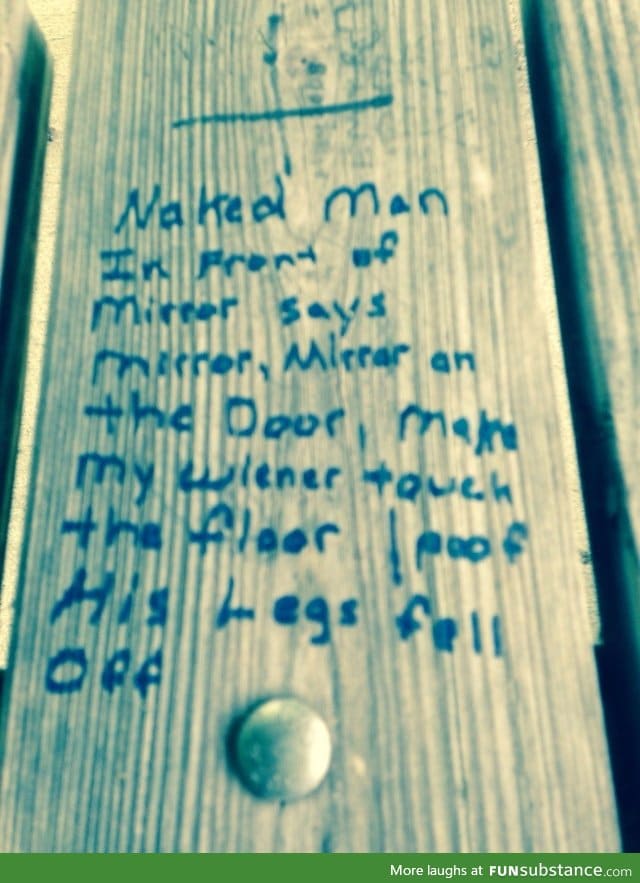 Naked Man
In Front of
Mirror says
mirror, Mirror on
the Door, Make
my wiener touch
the floor ! poof
His Legs fell
Off
More laughs at FUNsubstance.com